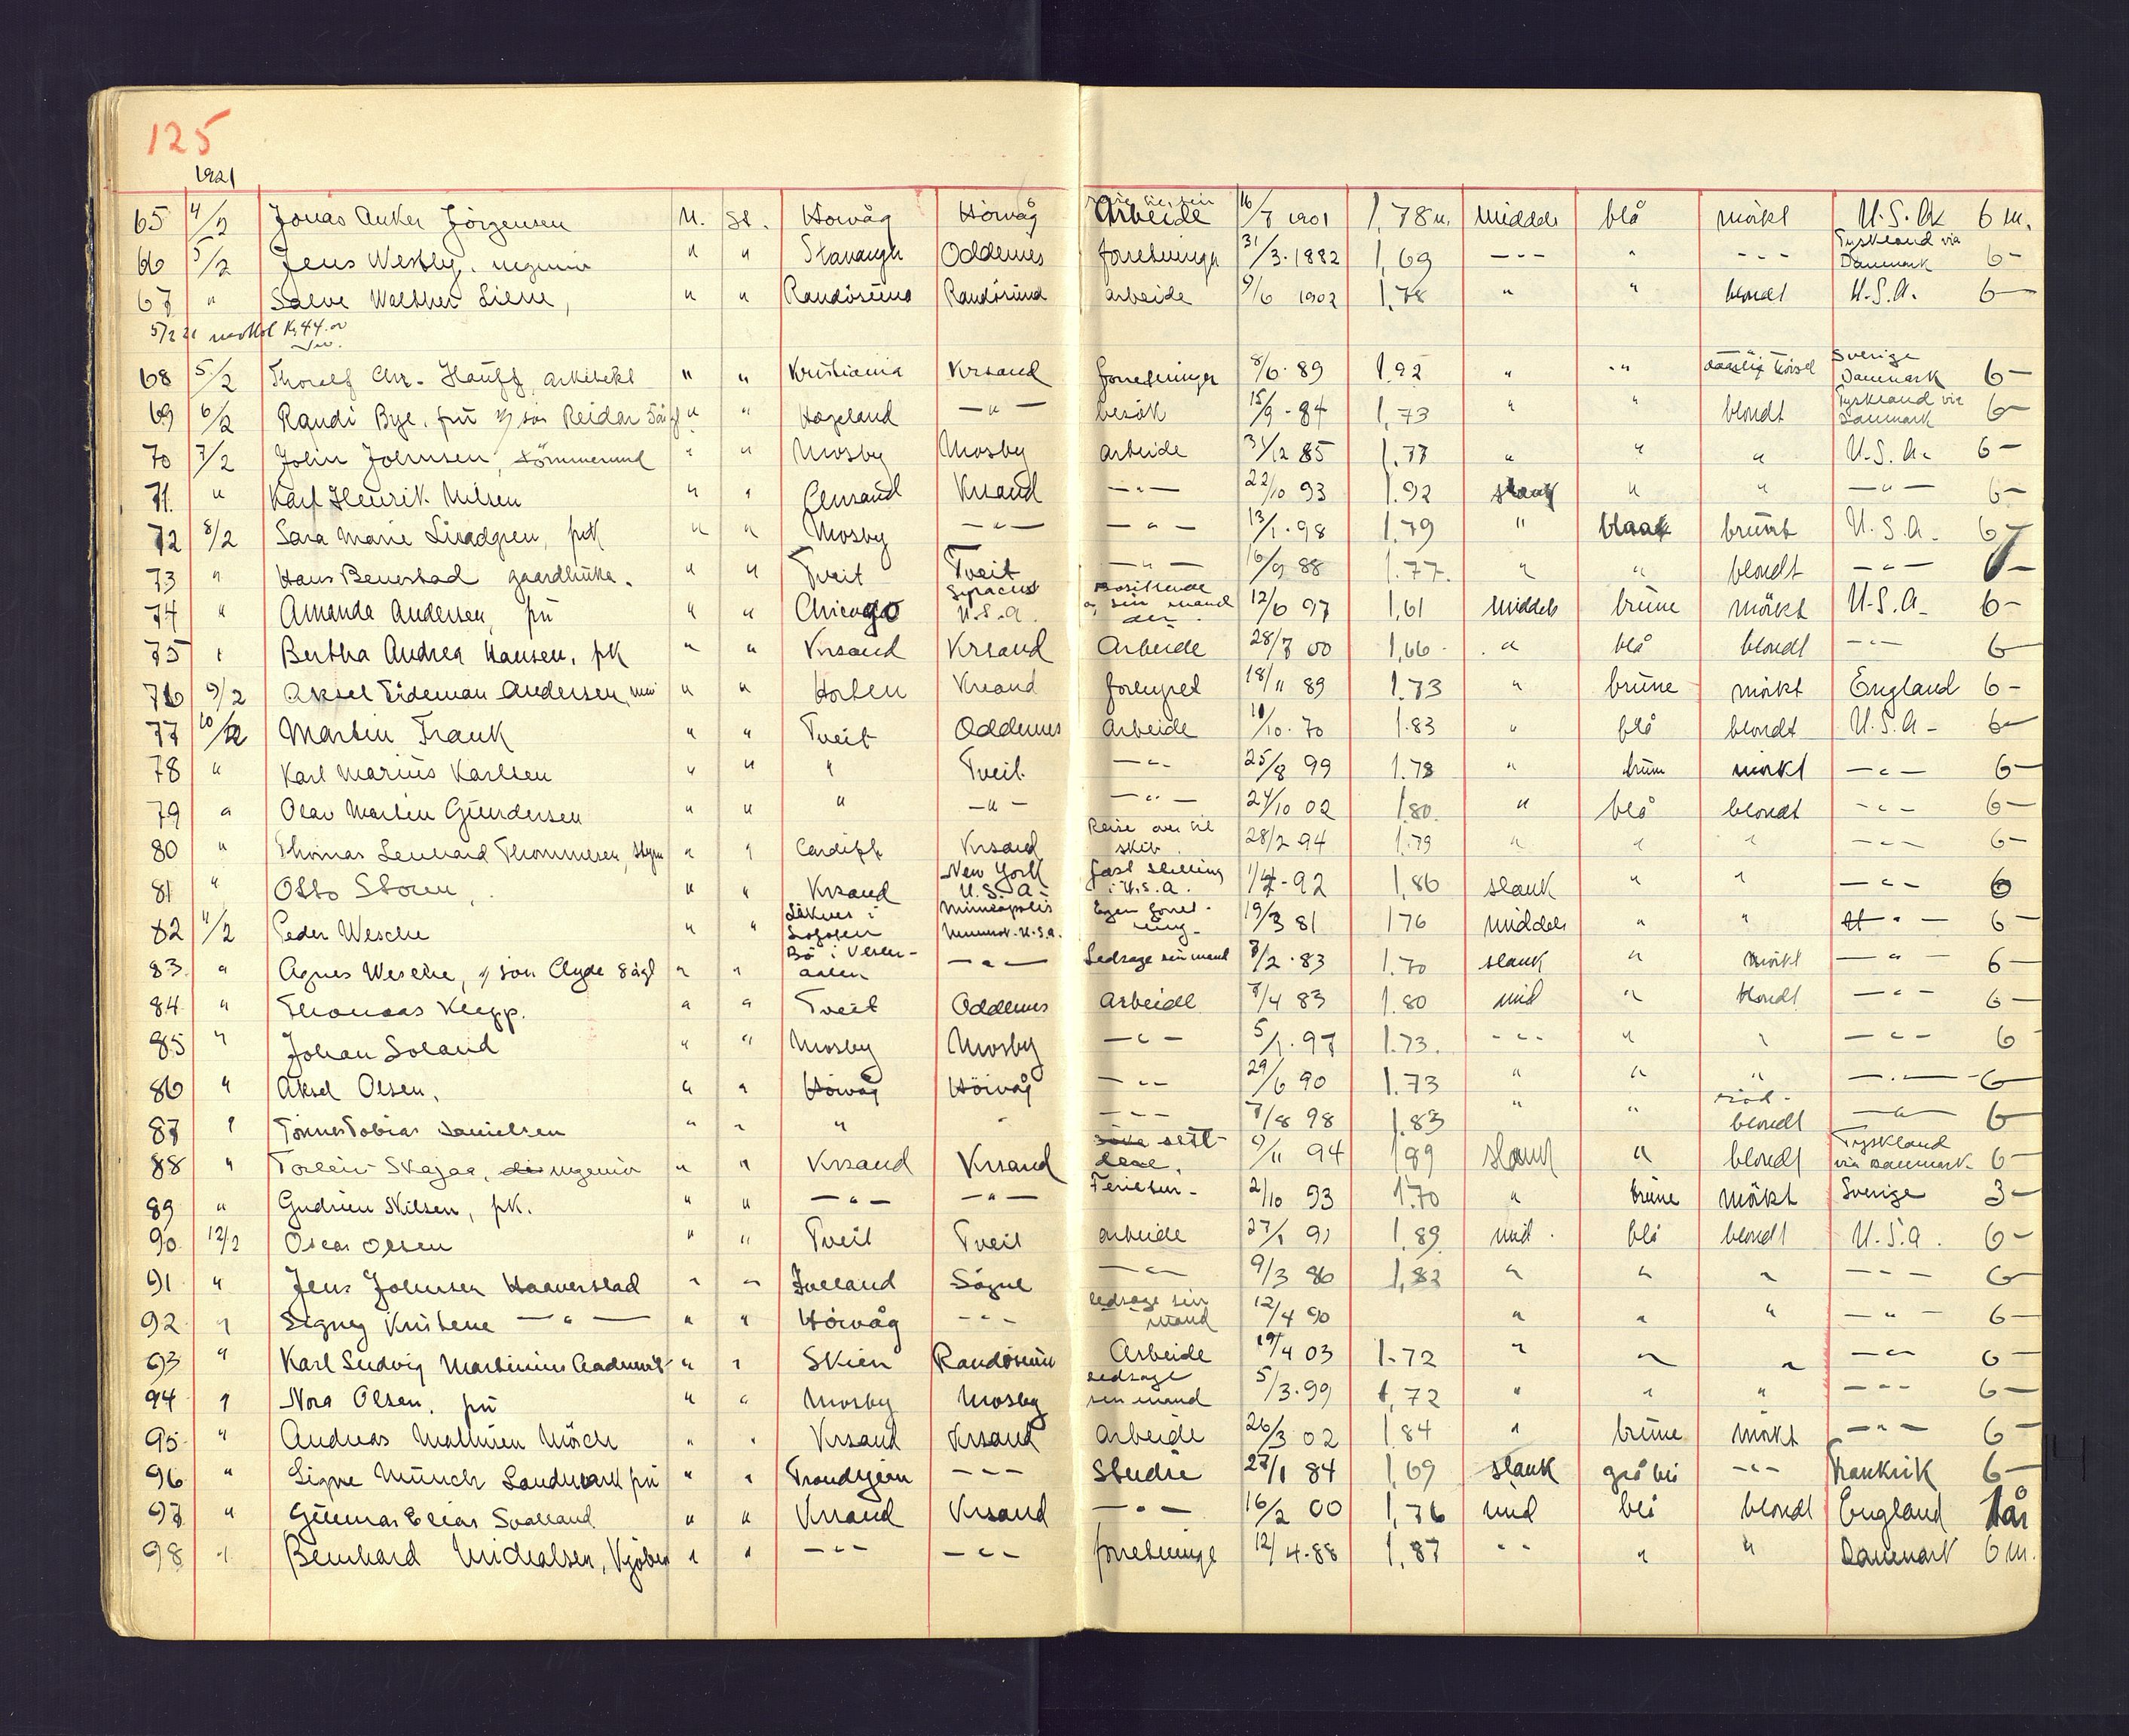 125
1921
65 4/2 Jonas Anker Jörgensen N. St. Hörvåg Hörvåg Arbeide 16/7 1901 1,78 m. middels blå mörkt U.S.A 6 m.
66 5/2 Jens Westby, ingeniör " " Stavanger Oddernes forretninger 31/3. 1882 1,69 - - - " - - - Tyskland via Danmark 6 -
67 " Salve Walther Liene, " " Randösund Randösund arbeide 9/6 1902 1,78 " " blondt U.S.A. 6 -
5/2 21 mottat Kr 44.00
68 5/2 Thoralf Chr. Hauff, arkitekt " " Kristiania Krsand forretninger 8/6. 89 1.92 " " Sverige Danmark 6 -
69 6/2 Randi Bye, frú m/ sön Reidar 5 " " Hægeland - " - besök 15/9 - 84 1,73 " " blondt Tyskland via Danmark 6 -
70 7/2 John Johnsen, tömmermand " " Mosby Mosby arbeide 31/12 85 1.77 " " " U.S.A. 6 -
71. " Karl Henrik Nilsen " " Krsand - " - 22/10 93 1.92 slank " " - " - 6 -
72 8/2 Sara Marie Lindgren, frk " " Mosby - " - - " - 13/1. 98 1,79 " blaa brúnt U.S.A. 6
73 " Hans Benestad gaardbrúker. " " Tveit Tveit - " - 16/9 88 1.77. " " blondt - " - 6 -
74 " Amanda Andersen, frú " " Chicago Syracus U.S.A. Bosittende og sin mand der. 12/6 97 1,61 middels brúne mörkt U.S.A. 6 -
75 " Bertha Andrea Hansen, frk " " Krsand Krsand Arbeide 28/7 00 1,66 - " blå blondt - " - 6 -
76 9/2 Aksel Tideman Andersen, " " Horten Krsand 18/11 89 1.73 " brúne mörkt England 6 -
77 10/2 Martin Frank " " Tveit Oddernes Arbeide 10. 70 1.83 " blå blondt U.S.A - 6 -
78 " Karl Marius Karlsen " " " Tveit - " - 25/8 99 1.78 " brúne mörkt - " - 6 -
79 " Olav Martin Gúndersen " " " - " - - " - 24/10 02 1.80. " blå blondt - " - 6 -
80 " Thomas Lenhard Thommesen, styrm " " Cardiff Krsand Reise over til skib. 28/2 94 1.79 " " " - " - 6 -
81 " Otto Storm, " " Krsand New York U.S.A - fast stilling i U.S.A. 92 1,86 slank " " - " - 6
82 11/2 Peder Wesche " " Leknes i Lofoten Mineapolis U.S.A. Egen forret- ning - 19/3 81 176 middels " " - " - 6 -
83. " Agnes Wesche, m/ sön Clyde 8 år gl " " Bö i Vester- aalen - " - Ledsage sin mand 8/2. 83 1.70 slank " mörkt - " - 6 -
84. " Thomas Klepp. " " Tveit Oddernes Arbeide 7/4 83 1.80 mid " blondt - " - 6 -
85 " Johan Soland " " Mosby Mosby - " - 5/1. 97 1.73. - " - " " - " - 6
86 " Aksel Olsen. " " Hörvåg Hörvåg - " - 29/6 90 1.73 " " " - " - 6 -
87 " Tönnes Tobias Danielsen " " " " - " - 7/8 98 1.83 " " röd - blondt - " - 6
88 " Torleiv Skajaa, ingeniör " " Krsand Krsand 9/11 94 1 89 slank " blondt Tyskland via Danmark 6 -
89 " Gudrún Nilsen, frk. " " - " - - " - Ferietur - 2/10 93 1.70 " brúne mörkt Sverige 3 -
90. 12/2 Oscar Olsen " " Tveit Tveit arbeide 27/1 91 1.89. mid. blå blondt U.S.A. 6 -
91 " Jens Johnsen Haaverstad " " Julland Sögne - " - 9/3 86 1,82 " " " - " - 6 -
92 " Signy Kristene - " - " " Hörvåg - " - ledsage sin mand 12/4 90 " " " - " - 6 -
93 " Karl Ludvig Martinius " " Skien Randösúnd Arbeide 19/4 03 1.72 " " " - " - 6 -
94 " Nora Olsen, frú " " Mosby Mosby ledsage sin mand 5/3. 99 1,72 " " " - " - 6 -
95 " Andreas Mathisen Mörch " " Krsand Krsand Arbeide 26/3 02 1 84 " brúne mörkt - " - 6 -
96 " Signe Múnch Landmark frú " " Trondhjem - " - Studie 27/1 84 1,69 slank grå blå - " - Frankrik 6 -
97 " Gúnnar Elias Svaland " " Krsand Krsand - " - 16/2 00 1,76 mid blå blondt England 1 år
98 " Bernhard Michalsen, Kjöbm " " - " - - " - forretninge 12/4. 88 1,87 - " - " " Danmark 6 m.